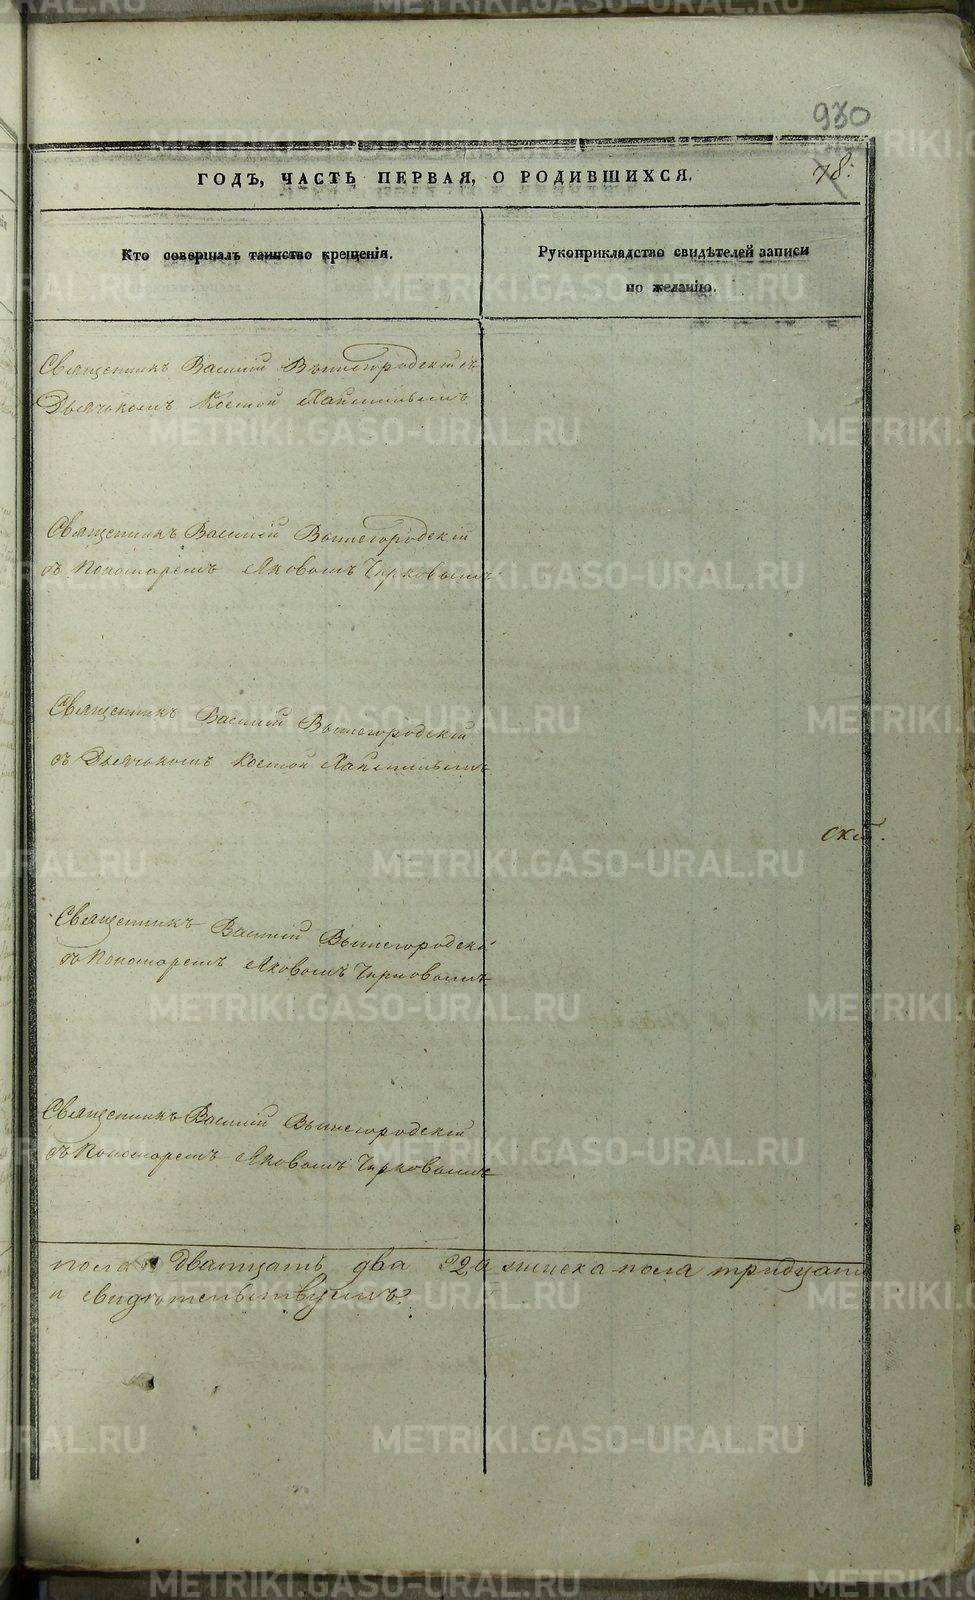 930
78.
ГОДЪ, ЧАСТЬ ПЕРВАЯ, О РОДИВШИХСЯ.
Кто совершалъ таинство крещенія.
Рукоприкладство свидѣтелей записи
по желанію.
Священникъ Василій Вышегородскій съ
Дьячькомъ Космой
Священникъ Василій Вышегородскій
съ Пономаремъ Яковомъ Чирковымъ
Священникъ Василій Вышегородскій
съ Дьячькомъ Космой
Священникъ Василій Вышегородскій
съ Пономаремъ Яковомъ Чирковымъ
Священникъ Василій Вышегородскій
съ Пономаремъ Яковомъ Чирковымъ
пола дватцать два 22, а женска пола тридцать
и свидѣтельствуемъ.
METRIKI.GASO-URAL.RU